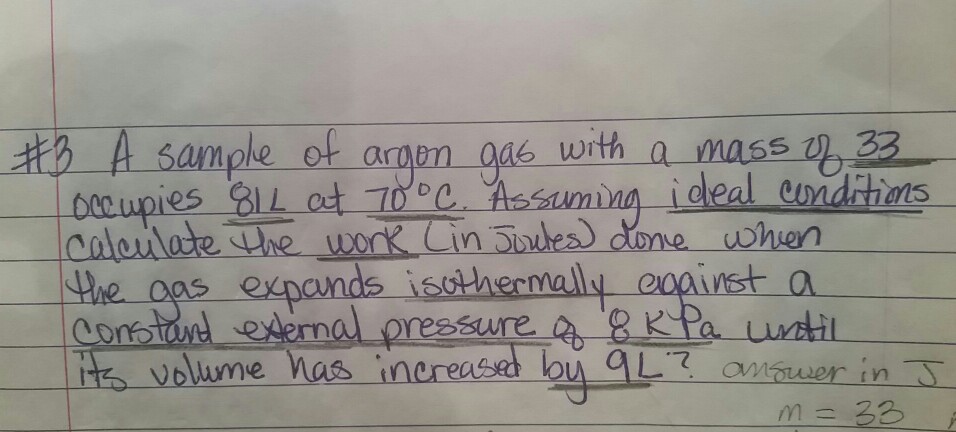 #3 A sample of argon gas with a mass of 33
occupies 81L at 70°C. Assuming ideal conditions
calculate the work (in Joules) done when
the gas expands isothermally against a
constant external pressure of 8 KPa until
its volume has increased by 9L? answer in J
m = 33